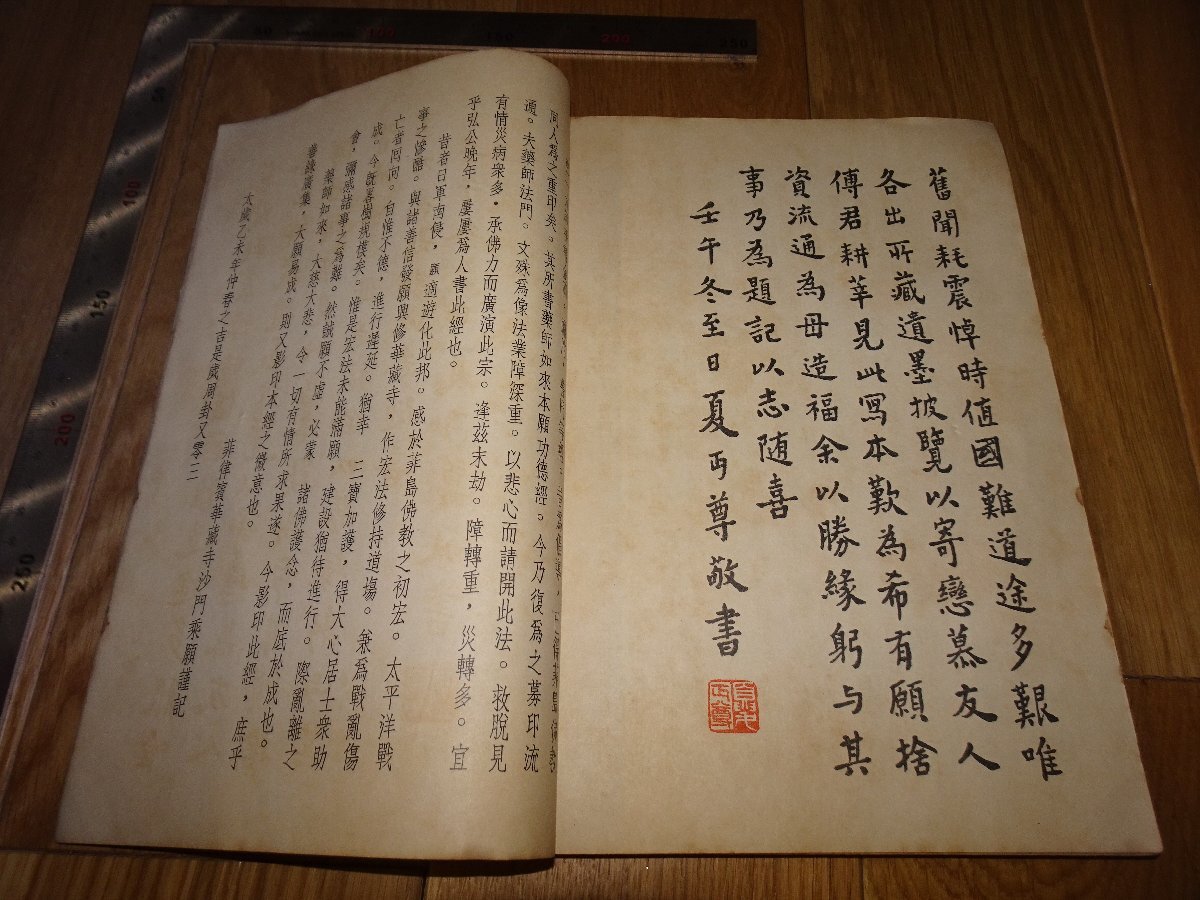 舊聞耗震悼時值國難道途多艱唯
各出所藏遺墨披覽以寄戀慕友人
傅君耕莘見此寫本歎為希有願捨
資流通為母造福余以勝緣躬与其
事乃為題記以志随喜
壬午冬至日夏丏尊敬書
同人為之重印矣。其所書藥師如來本願功德經。今乃復為之募印流
通。夫藥師法門。文殊為像法業障深重。以悲心而請開此法。救脫見
有情災病衆多。承佛力而廣演此宗。逢茲末劫。障轉重，災轉多。宜
乎弘公晚年，屢屢為人書此經也。
昔者日軍南侵，適遊化此邦。感於菲島佛教之初宏。太平洋戰
事之慘酷。與諸善信發願興修華藏寺，作宏法修持道場。兼為戰亂傷
亡者回向。自惟不德，進行遲延。猶幸 三寶加護，得大心居士衆助
成。今旣畧樹規模矣。惟是宏法未能滿願，建設猶待進行。際亂離之
會，彌感諸事之為難。然誠願不虛，必蒙 諸佛護念，而底於成也。
藥師如來，大慈大悲，令一切有情所求果遂。今影印此經，庶乎
善緣廣集，大願易成。則又影印本經之微意也。
太歲乙未年仲春之吉是歲周卦又零三
菲律賓華藏寺沙門乘願謹記
50
100
150
200
250
50
100
150
200
250